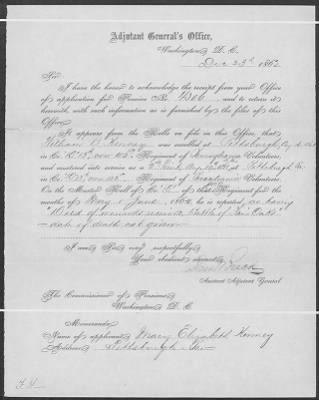 Adjutant General's Office,
Washington, D. C.
Dec 23d 1862
Sir:
I have the honor to acknowledge the receipt from your Office
of application for Pension No. and to return it
herewith, with such information as is furnished by the files of this
Office.
It appears from the Rolls on file in this Office, that
William was enrolled at Pittsburgh,
in Co. Regiment of Pennsylvania Volunteers,
and mustered into service as a at Pittsburgh Pa
in Co. Regiment of Pennsylvania Volunteers.
On the Muster Roll of Co. of that Regiment for the
months of May & June, 1862, he is reported as having
"Died of wounds battle of Fair Oaks"
date of death not given
I am Sir, very respectfully,
Your obedient servant,
Assistant Adjutant General
The Commissioner of Pensions
Washington, D. C.
Memoranda:
Name of applicant, Elizabeth Kenney
Address, Pittsburgh Pa